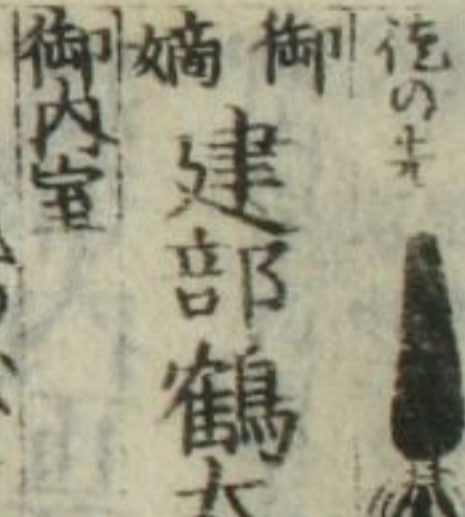 徒の先
御嫡
建部鶴
御内室